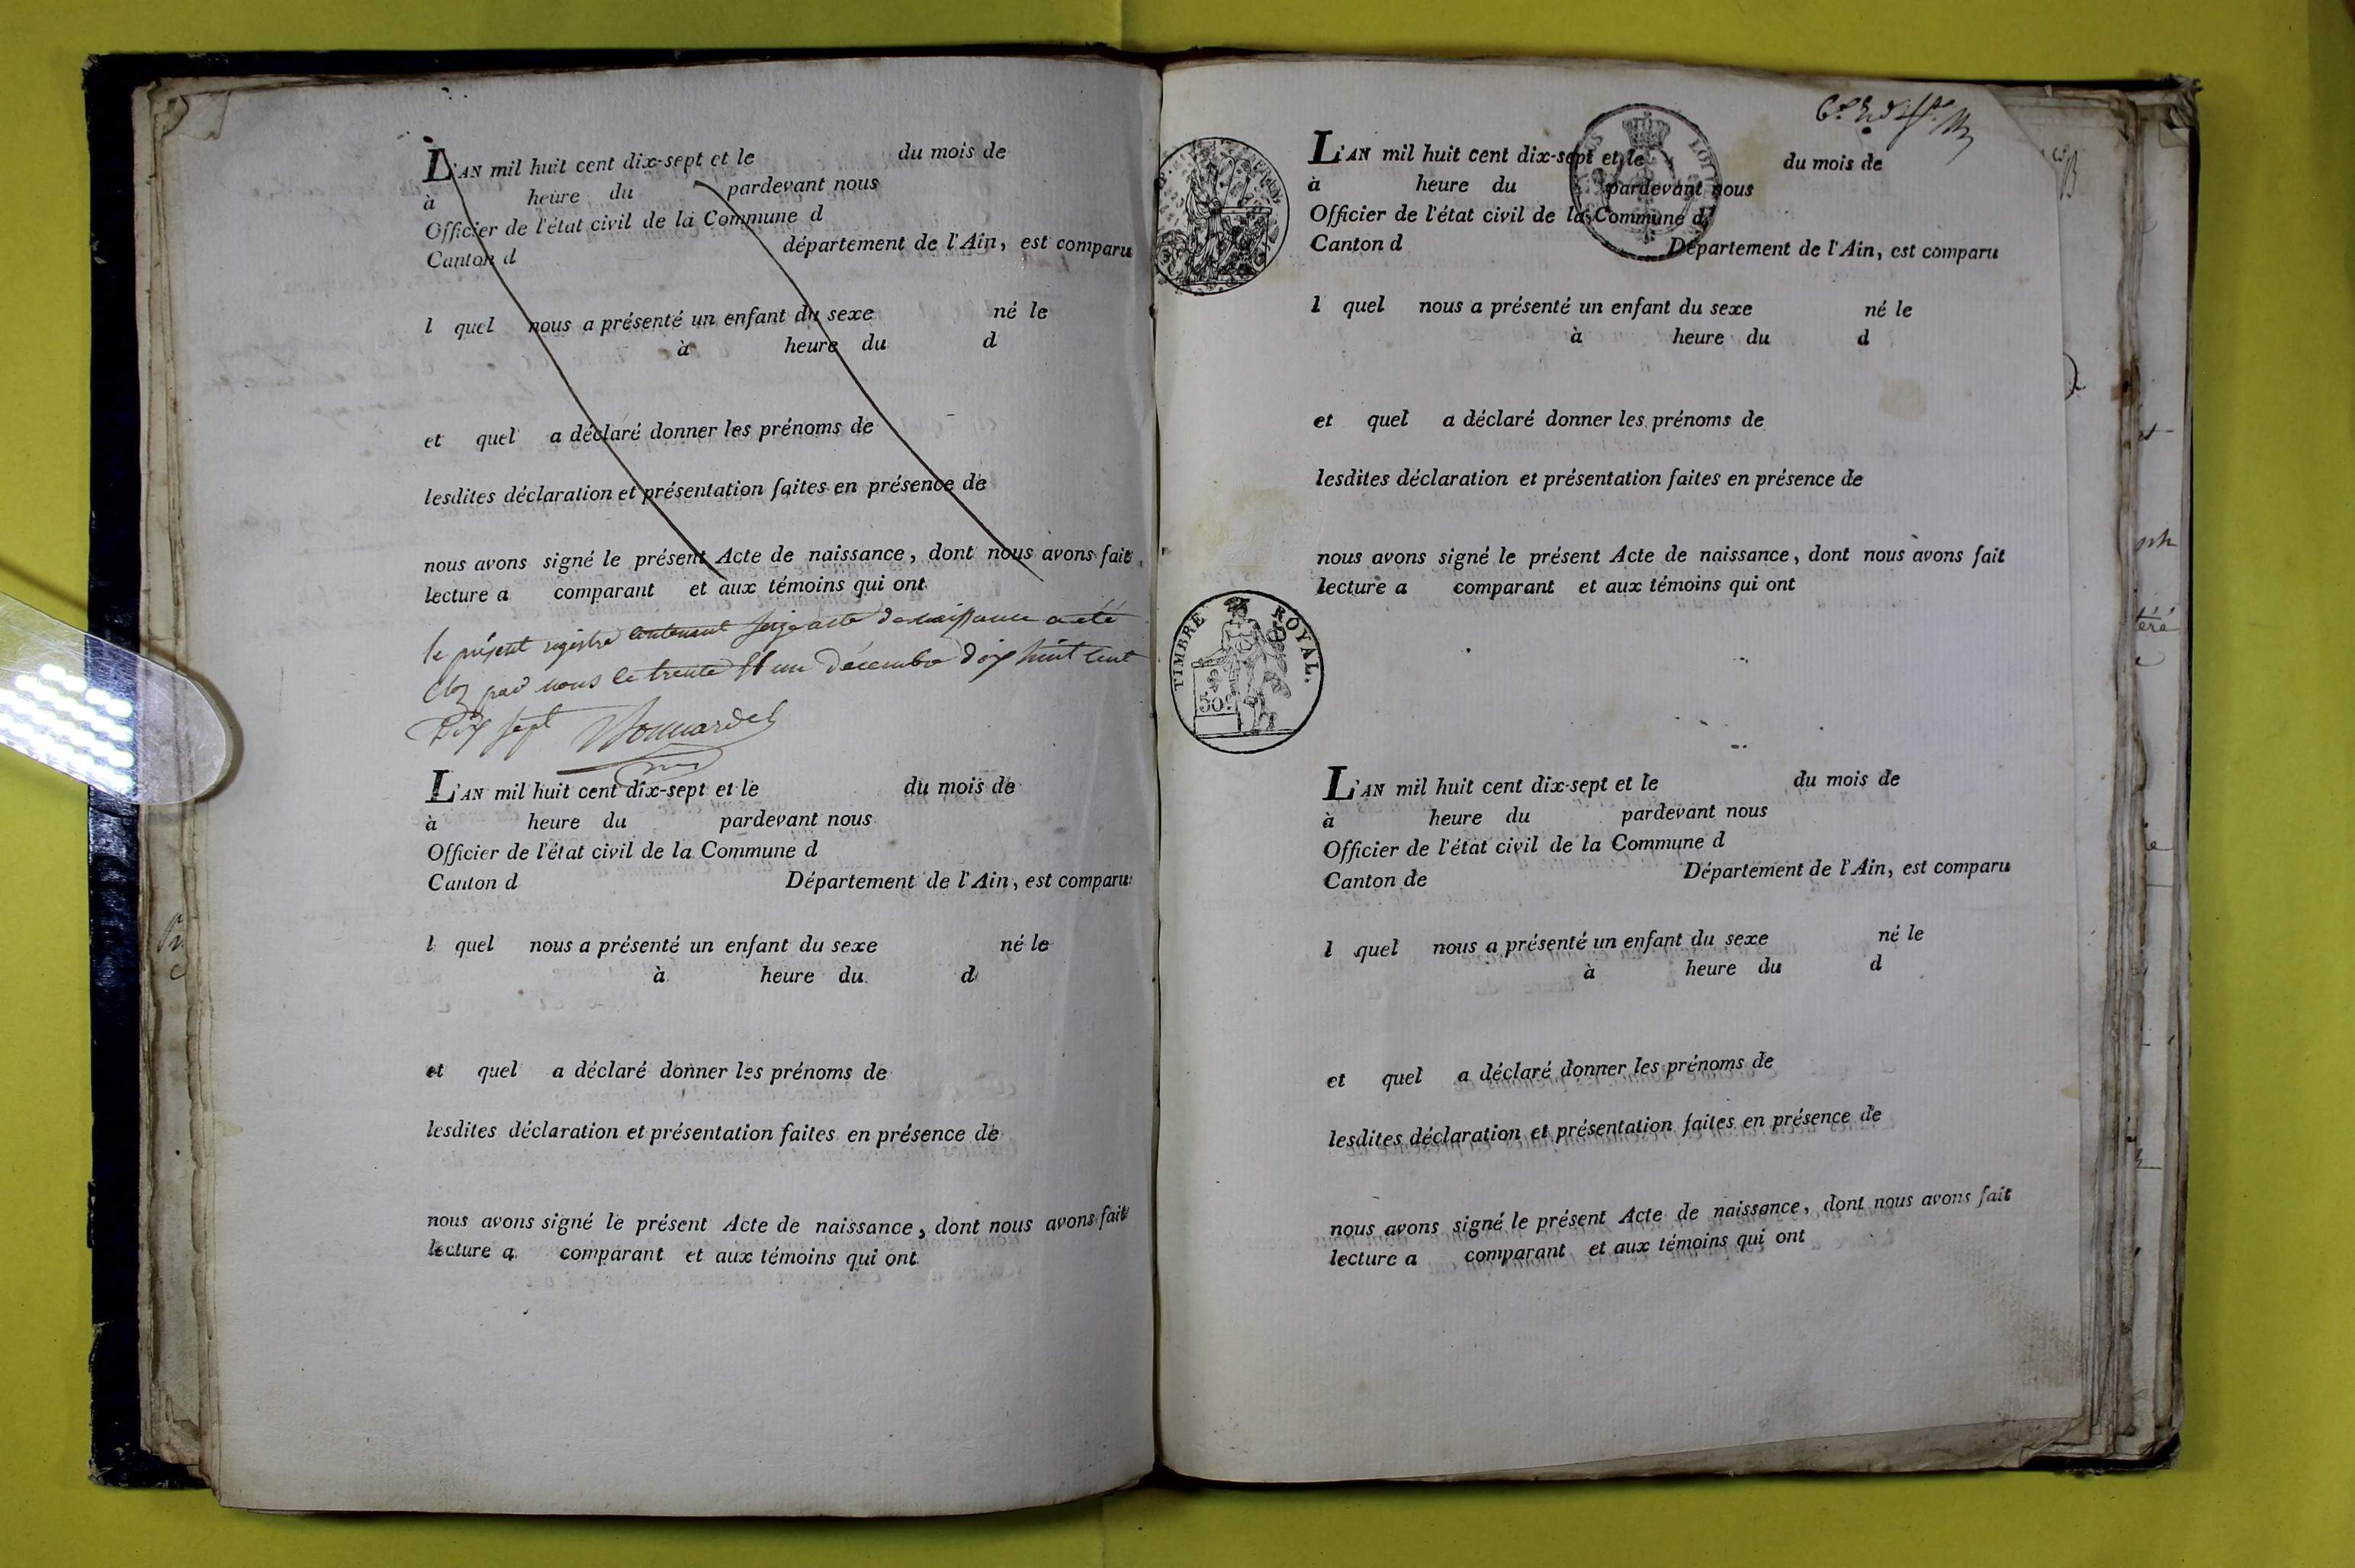 L'AN mil huit cent dix-sept et le du mois de
à heure du pardevant nous
Officier de l'état civil de la Commune d
Canton d département de l'Ain, est comparu
l quel nous a présenté un enfant du sexe né le
à heure du d
et quel a déclaré donner les prénoms de
lesdites déclaration et présentation faites en présence de
nous avons signé le présent Acte de naissance, dont nous avons fait
lecture a comparant et aux témoins qui ont
le présent registre contenant seize acte de naissance a été
Clos par nous le trente et un décembre dix huit cent
Dix sept Bonnardel
L'AN mil huit cent dix-sept et le du mois de
à heure du pardevant nous
Officier de l'état civil de la Commune d
Canton d Département de l'Ain, est comparu
l quel nous a présenté un enfant du sexe né le
à heure du d
et quel a déclaré donner les prénoms de
lesdites déclaration et présentation faites en présence de
nous avons signé le présent Acte de naissance, dont nous avons fait
lecture a comparant et aux témoins qui ont
L'AN mil huit cent dix-sept et le du mois de
à heure du pardevant nous
Officier de l'état civil de la Commune d
Canton d Département de l'Ain, est comparu
l quel nous a présenté un enfant du sexe né le
à heure du d
et quel a déclaré donner les prénoms de
lesdites déclaration et présentation faites en présence de
nous avons signé le présent Acte de naissance, dont nous avons fait
lecture a comparant et aux témoins qui ont
TIMBRE ROYAL.
50c
L'AN mil huit cent dix-sept et le du mois de
à heure du pardevant nous
Officier de l'état civil de la Commune d
Canton de Département de l'Ain, est comparu
l quel nous a présenté un enfant du sexe né le
à heure du d
et quel a déclaré donner les prénoms de
lesdites déclaration et présentation faites en présence de
nous avons signé le présent Acte de naissance, dont nous avons fait
lecture a comparant et aux témoins qui ont